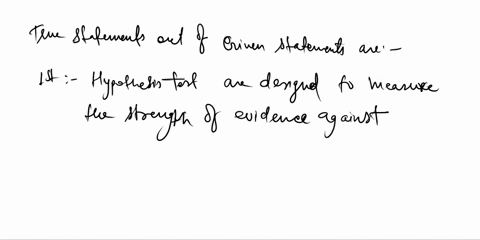 True statements out of Given statements are:-
1st :- Hypothesis test are designed to measure
the strength of evidence against